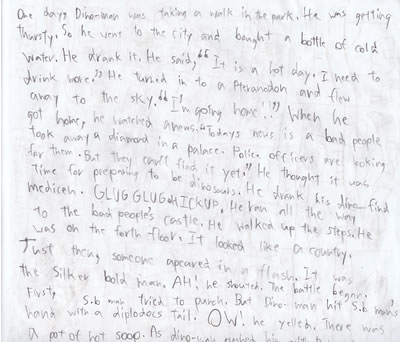 One day, Dino-man was taking a walk in the park. He was getting
thirsty. So he went to the city and bought a bottle of cold
water. He drank it. He said, "It is a hot day. I need to
drink more." He turned in to a Pteranodon and flew
away to the sky. "I'm going home!!" When he
got home, he watched a news. "Todays news is a bad people
took away a diamond in a palace. Police officers are looking
for them. But they can't find it yet." He thought it was
Time for preparing to be dinosaurs. He drank his dino-
medicen. GLUG GLUG HICKUP. He ran all the way
to the bad people's castle. He walked up the steps. He
was on the forth floor. It looked like a country.
Just then, someone apeared in a flash. It was
the Silker bold man. AH! he shouted. The battle began.
First, S.b man tried to punch. But Dino-man hit S.b man's
hand with a diplodocs tail. OW! he yelled. There was
a pot of hot soop. As dino-man